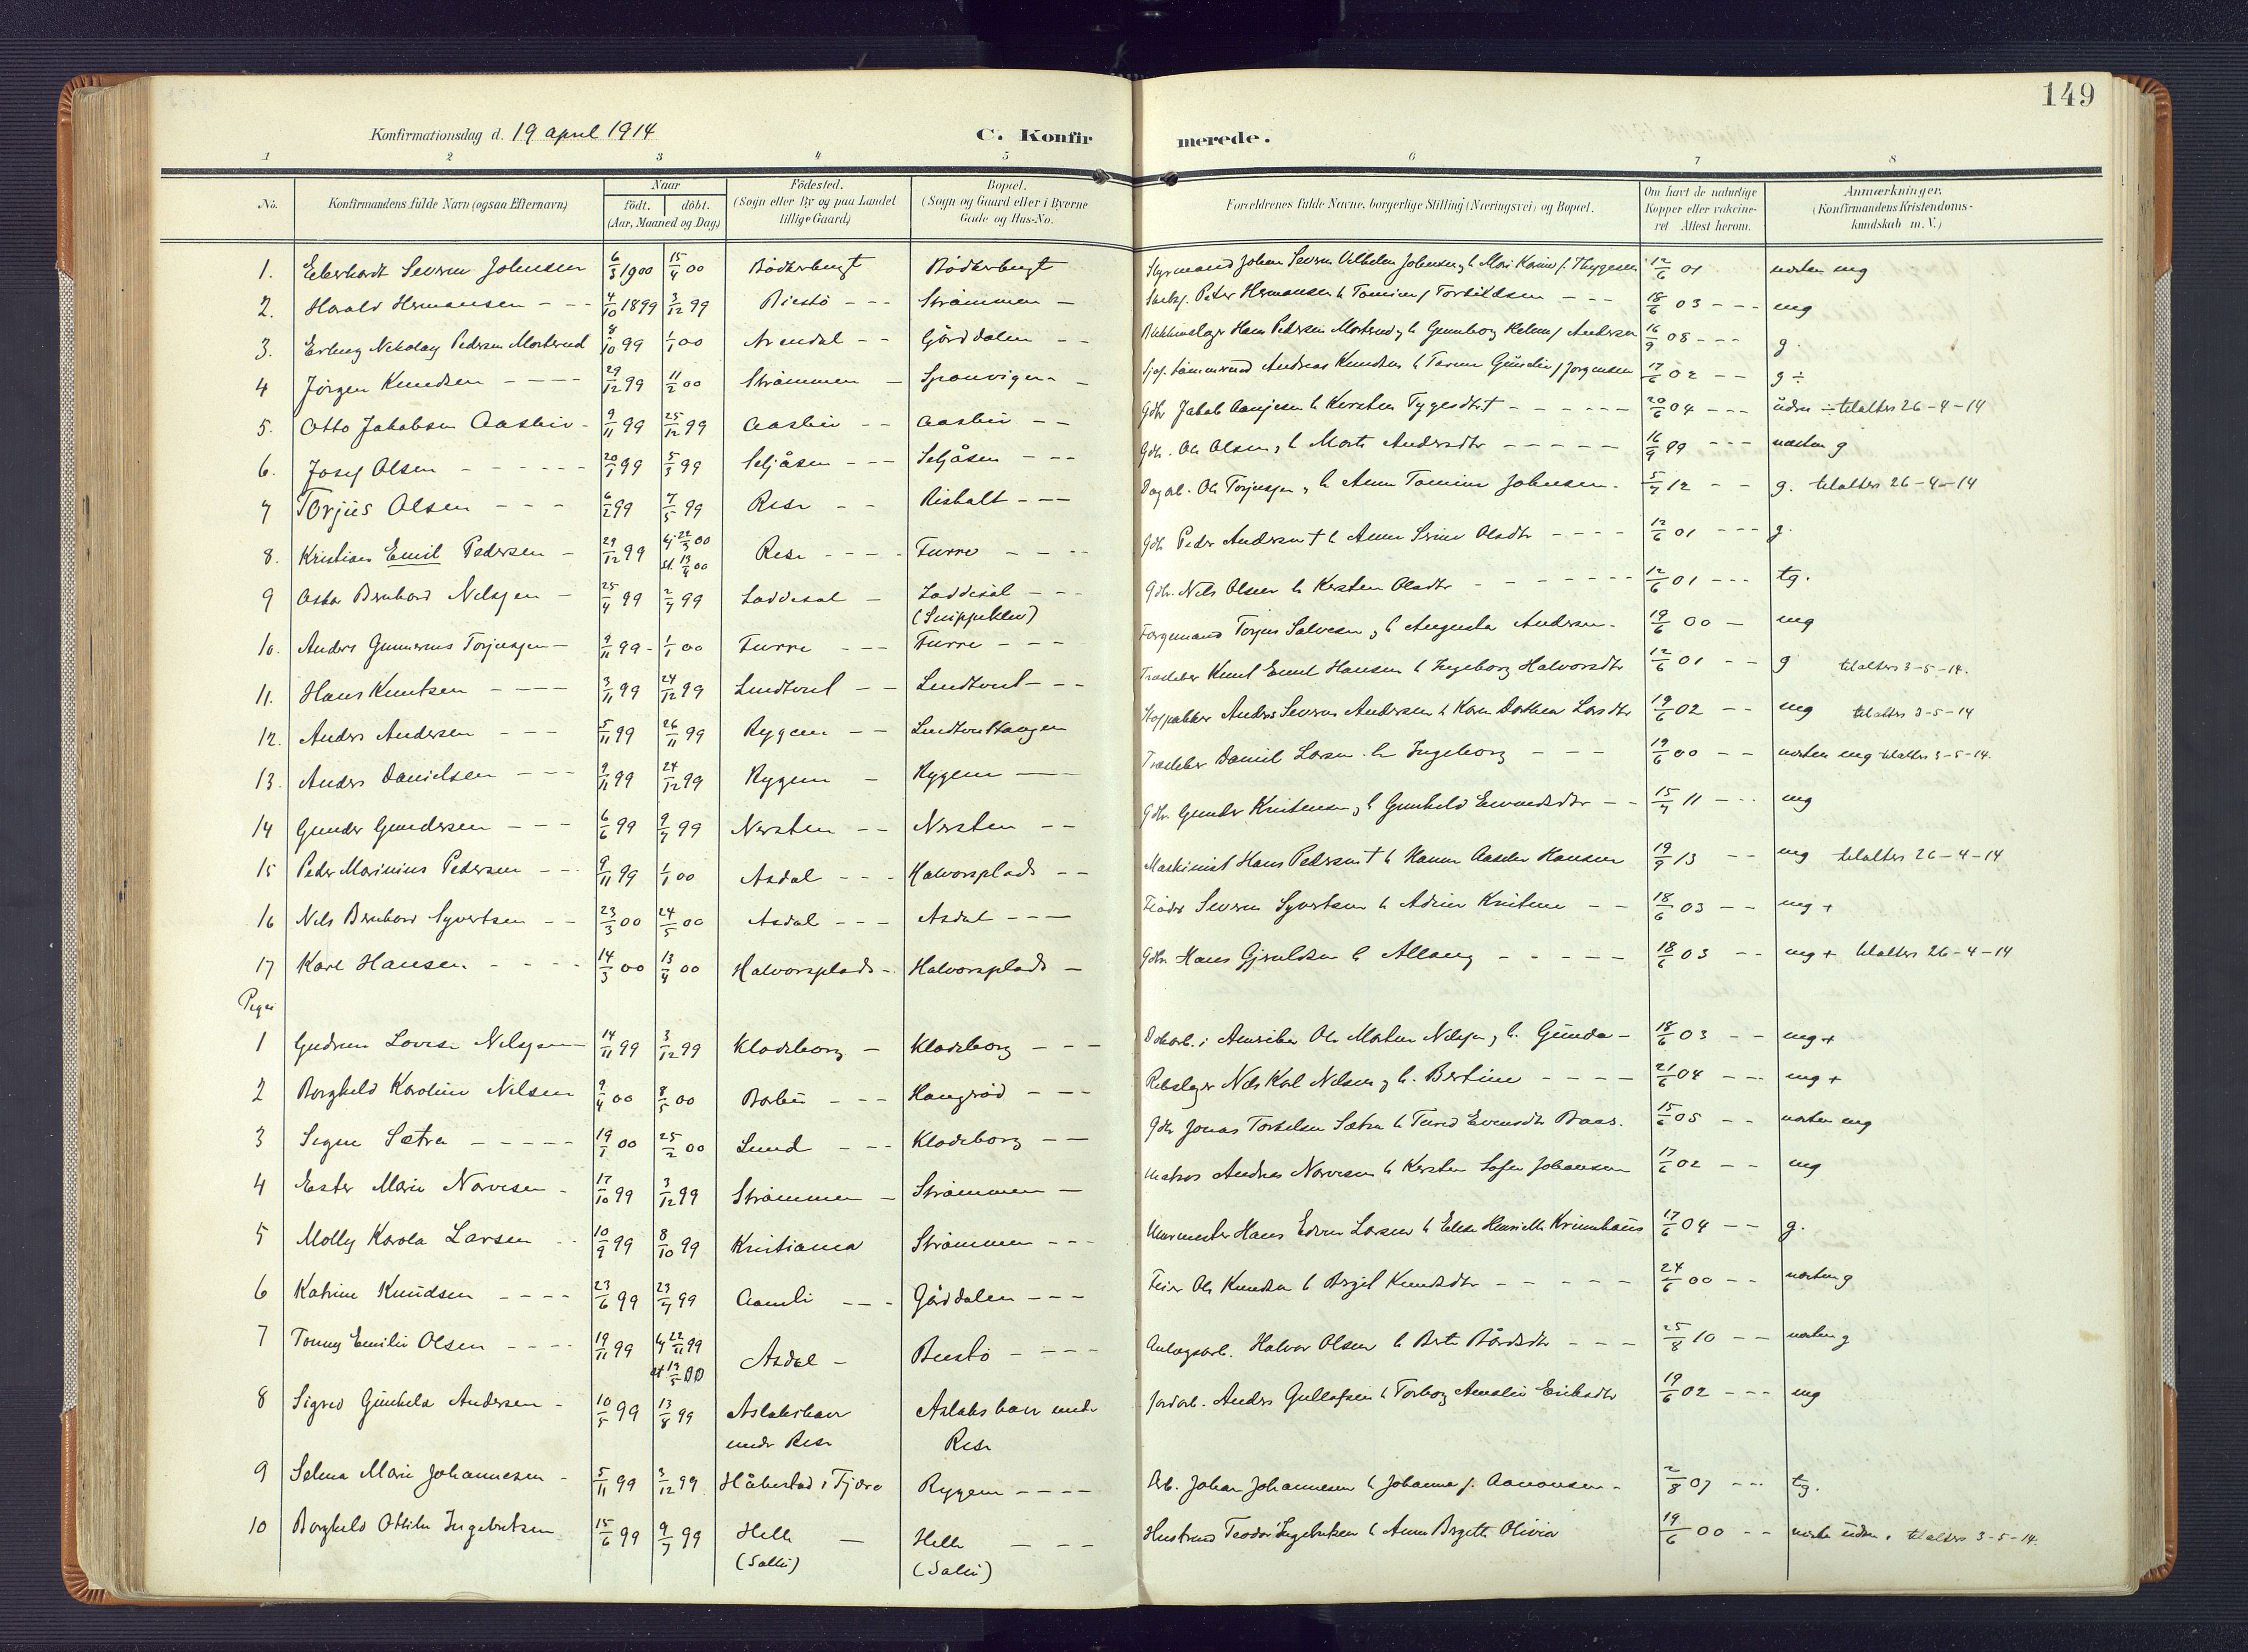 149
Konfirmationsdag d. 19 april 1914 C. Konfirmerede.
1 2 3 4 5 6 7 8
No. Konfirmandens fulde Navn (ogsaa Efternavn) Naar födt. döbt. (Aar, Maaned og Dag) Födested. (Sogn eller By og paa Landet tillige Gaard) Bopæl. (Sogn og Gaard eller i Byerne Gade og Hus-No. Forældrenes fulde Navne, borgerlige Stilling (Næringsvei) og Bopæl. Om havt de naturlige Kopper eller vakcineret Attest herom. Anmærkninger. (Konfirmandens Kristendomskundskab m. V.)
1. Eberhardt Severin Johnsen 6/3 1900 15/4 00 Bödkerbugt Bödkerbugt Styrmand Johan Severin Vilhelm Johnsen, h Mari Karine f. Thygesen 12/6 01 næsten mg
2. Harald Hermansen - - - 4/10 1899 3/12 99 - - - Strömmen - Peter Hermansen h Tomine f Torkildsen - - - 18/6 03 - - - mg
3. Erling Nikolay Pedersen Morterud 8/10 99 1/1 00 Arendal - - Gårddalen - - Blikkenslager Hans Pedersen Morterud, h Gunnborg Helene f Andersen 16/9 08 - - - g.
4 Jörgen Knudsen - - - - 29/12 99 11/2 00 Strömmen - - Andreas Knudsen h Tarine Gündie f Jorgensen 17/6 02 - - g ÷
5. Otto Jakobsen Aasbie - 9/11 99 25/12 99 Aasbie - - Aasbie - - Gdbr Jakob Aanjesen h Kirsten Tygesdtr † - - - - - - 20/6 04 - - - tilalters 26-4-14
6. Josef Olsen - - - - - - 20/1 99 5/3 99 Seljåsen - - - Seljåsen - - - Gdbr. Ole Olsen, h Marte Andersdtr - - - - - 16/9 99 - - - næsten g
7 Torjüs Olsen - - - 6/2 99 7/5 99 Rese - - Risholt - - - Dagarb. Ole Torjussen, h Anne Tomine Johnsen. 5/7 12 - - g. tilalters 26-4-14
8. Kristian Emil Pedersen - 29/12 99 hj 22/3 00 st. 13/4 00 Rese - - - - Furre - - - Gdb Peder Andersen † h Anne Serine Olsdtr - - - - 12/6 01 - - - g.
9 Oskar Bernhard Nilssen - 25/4 99 2/7 99 Loddesøl - Loddesøl - - - (Snippeklev) Gdbr. Nils Olsen h Kirsten Olsdtr - - - - - - - 12/6 01 - - - tg.
10. Anders Gunnerius Torjussen - 9/11 99 - 1/1 00 Furre - - - Furre - - - Færgemand Torjus Salvesen, h Augusta Andersen - 19/6 00 - mg
11. Hans Knutsen - - - - 3/11 99 24/12 99 Lindtveit - - Lindtveit - - - Knut Emil Hansen h Ingeborg Halvorsdtr 12/6 01 - - g tilalters 3-5-14.
12. Anders Andersen - - - 5/11 99 26/11 99 Rygene - - Anders Severin Andersen h Karen Dorthea Larsdtr 19/6 02 - - mg tilalters 3-5-14
13. Anders Danielsen - - - 9/11 99 24/12 99 Rygene - Rygene - - Daniel Larsen h Ingeborg - - - 19/6 00 - - næsten mg tilalters 3-5-14.
14 Gunder Gundersen - - - 6/6 99 9/7 99 Nersten - - Nersten - - Gdbr. Gunder Kristensen, h Gunhild Eivindsdtr - - 15/7 11 - - - mg
15 Peder Marinius Pedersen - - - 9/11 99 1/1 00 Asdal - - - Halvorsplads - - Maskinist Hans Pedersen † h Hanne Aasele Hansen 19/9 13 - - mg tilalters 26-4-14
16 Nils Bernhard Syvertsen - - 23/3 00 24/5 00 Asdal - - - Asdal - - - Severin Syvertsen h Adine Kristine - - 18/6 03 - - mg +
17 Karl Hansen. - - - - 14/3 00 13/4 00 Halvorsplads - . Halvorsplads - Gdbr Hans Gjeruldsen h Allaug - - - - - 18/6 03 - - mg + tilalters 26-4-14
Piger
1 Gudrun Lovise Nilssen 14/11 99 3/12 99 Kladeborg - Kladeborg - - - i Amerika Ole Morten Nilssen, h. Günda - 18/6 03 - - mg +
2 Borghild Karoline Nilsen 9/4 00 8/5 00 Barbü - - - Haugröd - - - Rebslager Nils Karl Nilsen, h. Bertine - - - - 21/6 04 - - - mg +
3 Signe Sætra - - - - - 19/1 00 25/2 00 Lund - - - Kladeborg - - Gdbr Jonas Torkelsen Sætra h Turid Evensdtr 15/6 05 - - næsten mg
4 Ester Marie Narvesen - 17/10 99 3/12 99 Strömmen - Strömmen - Matros Andreas Narvesen h Kirsten Sofie Johansen 17/6 02 - - mg
5 Molly Karola Larsen - - 10/9 99 8/10 99 Kristiania Strömmen - - - Murmester Hans Edvin Larsen h Henriette 17/6 04 - - g.
6 Katrine Knüdsen - - - - 23/6 99 23/7 99 Aamli - - - Gårddalen - - - Feier Ole Knudsen h Knudsdtr - - - - - 24/6 00 - - næsten g
7 Tomy Emilie Olsen - - - - 19/11 99 hj 22/11 99 st 13/5 00 Asdal - Biestö - - - - Anlægsarb. Halvor Olsen h Berte Bårdsdtr - - - 25/8 10 - - næsten g
8 Sigrid Günhilda Andersen - 10/5 99 13/8 99 Aslakshavn under Rese Aslakshavn under Rese Jordarb. Anders Gullofsen h Torborg Amalie Eriksdtr 19/6 02 - - - mg
9 Selma Marie Johannesen - 5/11 99 3/12 99 Håbestad i Fjære Rygene - - - - Arb. Johan Johannesen h Johanne f. Aanonsen - 2/8 07 - - - tg.
10 Borghild Otilie Ingebretsen 15/6 99 9/7 99 Helle - (Salli) Helle - - - (Salli) Teodor Ingebretsen h Anne Birgitte Olivia 19/6 00 - - tilalters 3-5-14.